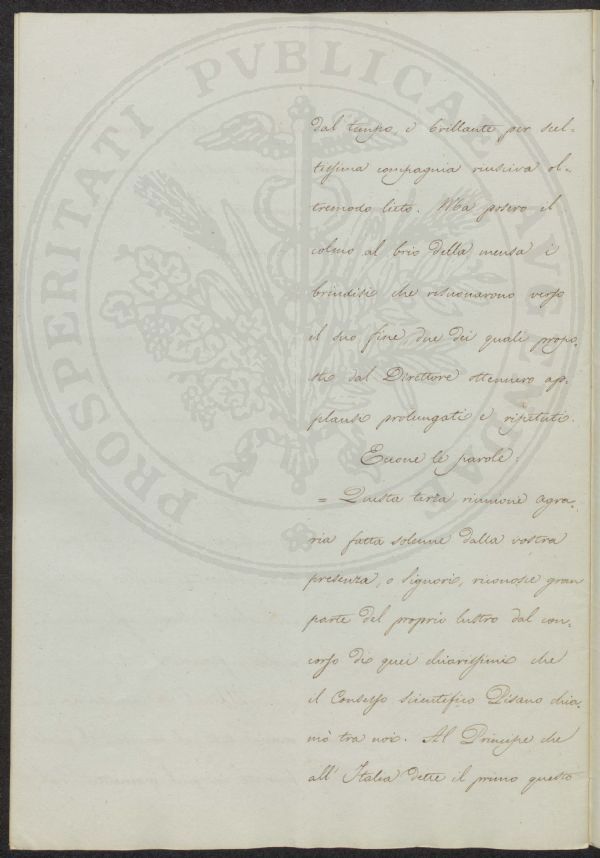 PROSPERITATI PVBLICAE AVGENDAE
dal tempo, e brillante per scel-
tissima compagnia riusciva ol-
tremodo lieto. Ma posero il
colmo al brio della mensa i
brindisi che risuonarono verso
il suo fine, due dei quali propo-
sti dal Direttore ottennero ap-
plausi prolungati e ripetuti.
Eccone le parole:
= Questa terza riunione agra-
ria fatta solenne dalla vostra
presenza, o Signori, riconosce gran
parte del proprio lustro dal con-
corso di quei chiarissimi che
il Consesso scientifico Pisano chia-
mò tra noi. Al Principe che
all' Italia dette il primo questo